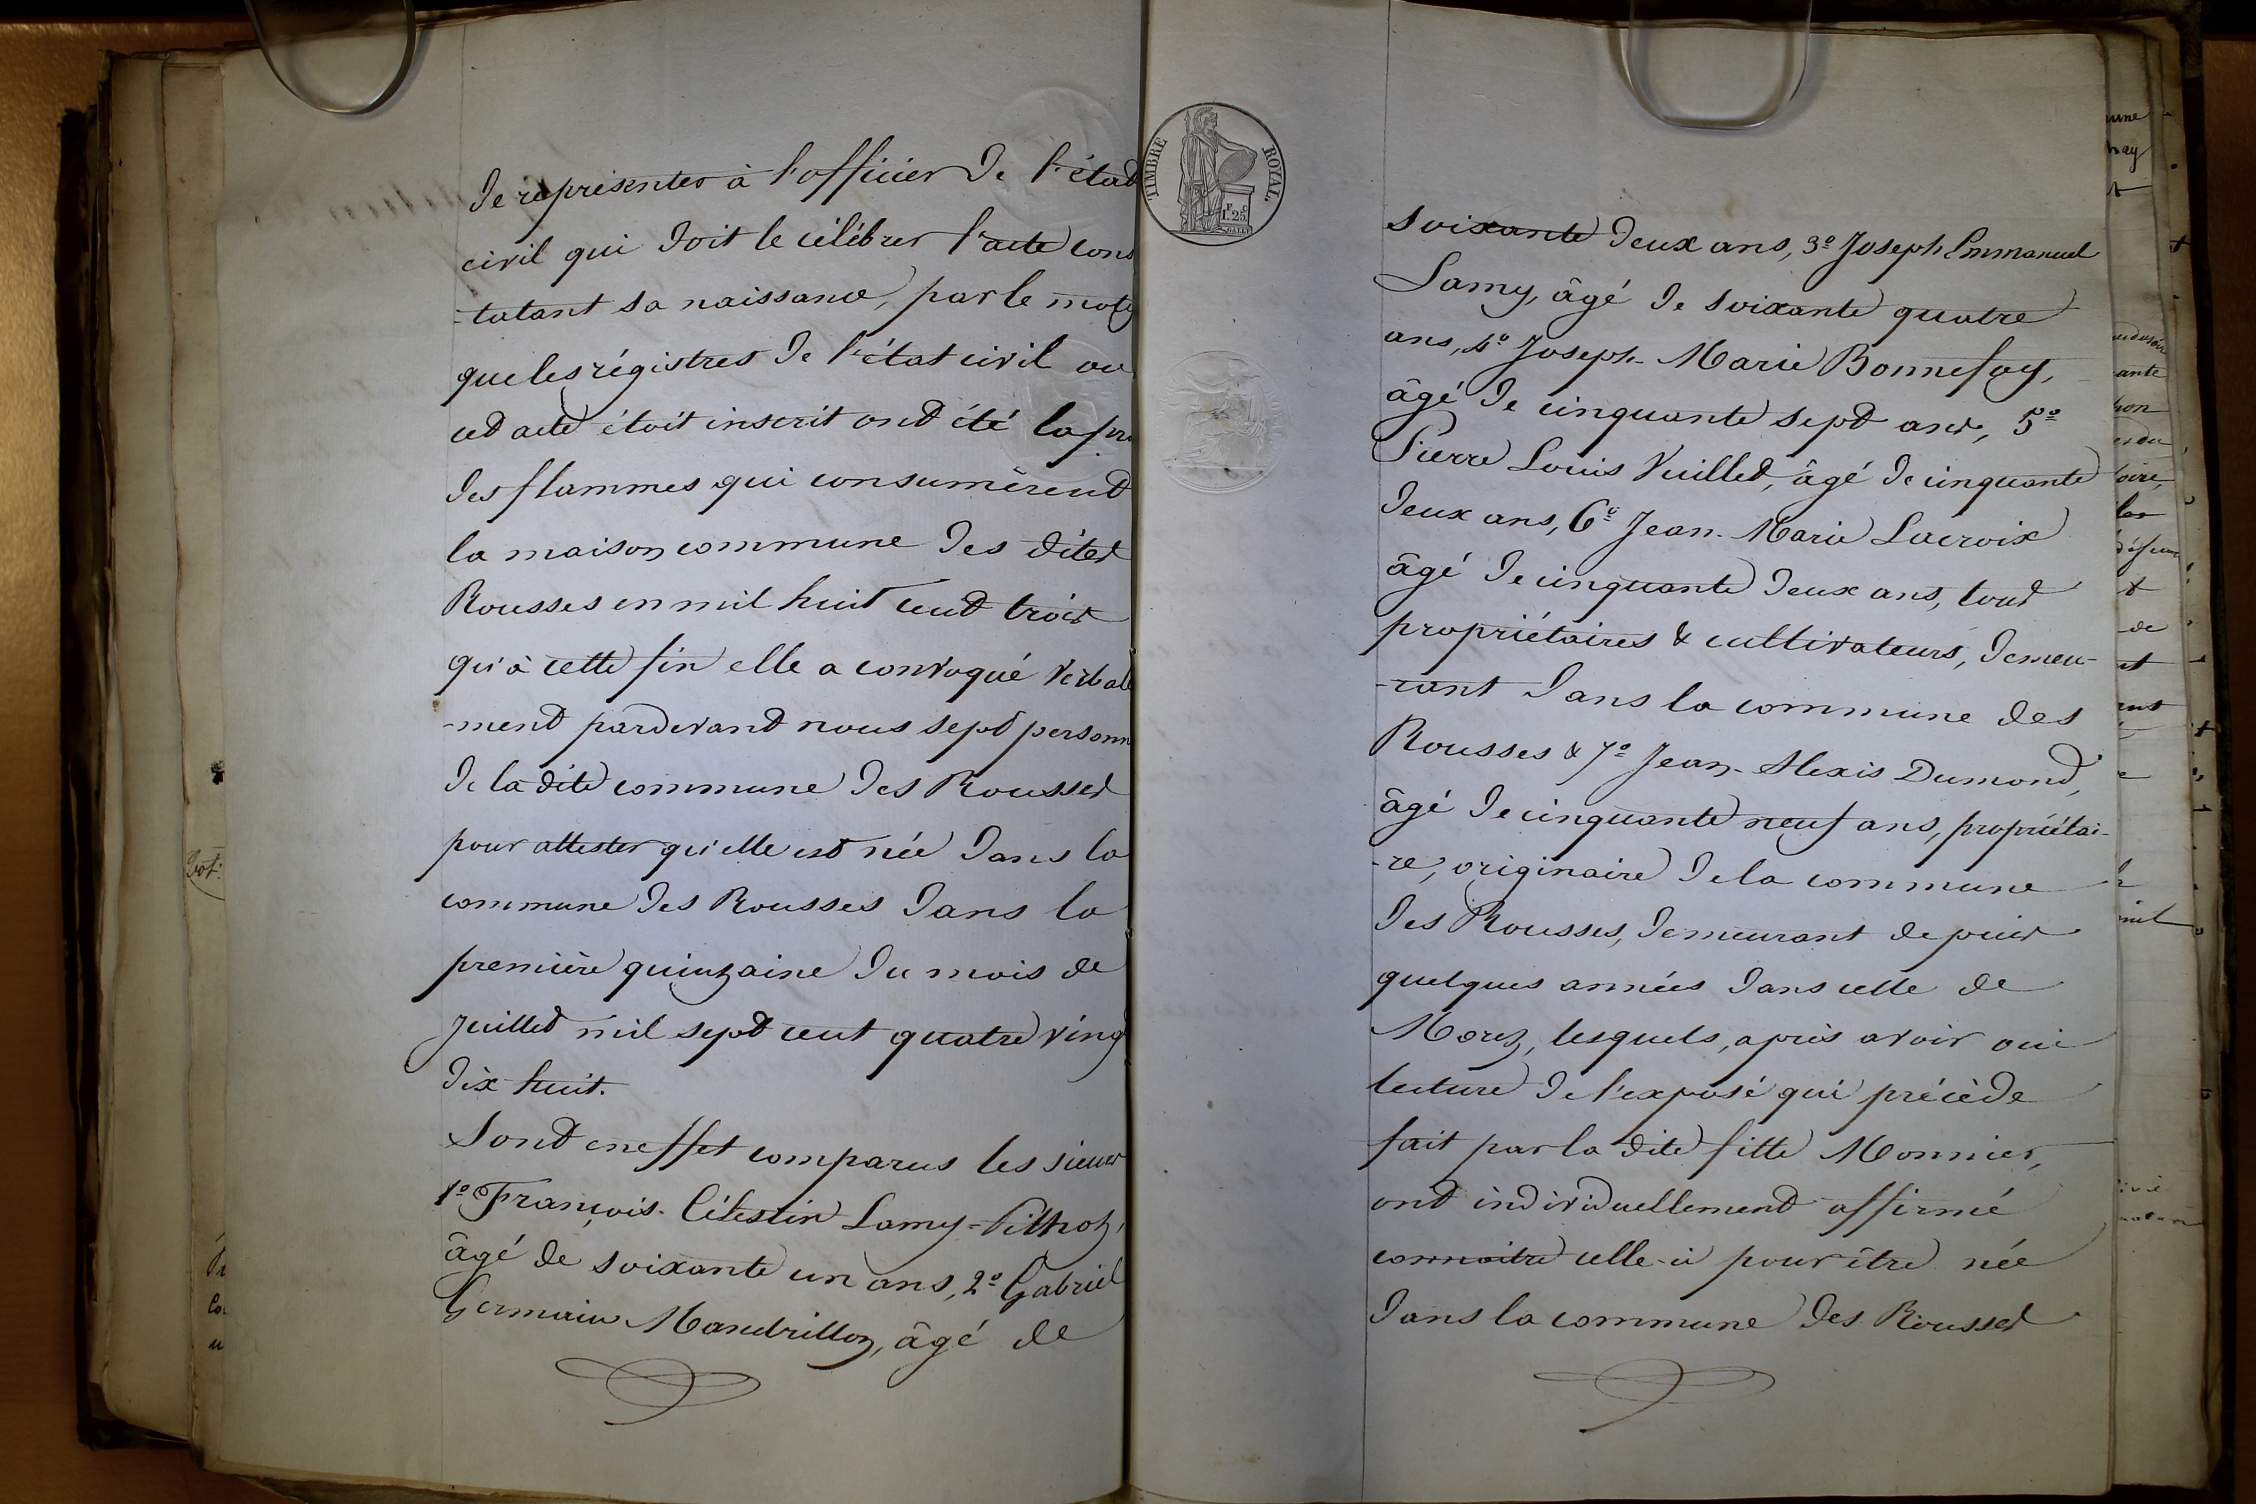 de représenter à l'officier de l'état
civil qui doit le célébrer l'acte cons
-tatant sa naissance, par le motif
que les régistres de l'état civil où
cet acte étoit inscrit ont été la pr
des flammes qui consumèrent
la maison commune des dites
Rousses en mil huit cent trois
qu'à cette fin elle a convoqué verbale
-ment pardevant nous sept personn
de la dite commune des Rousses
pour attester qu'elle est née dans la
commune des Rousses dans la
première quinzaine du mois de
juillet mil sept cent quatre ving
dix huit.
Sont en effet comparus les sieurs
1º François-Célestin Lamy-Pilhoz,
âgé de soixante un ans, 2º Gabriel
Germain Mandrillon, âgé de
TIMBRE ROYAL.
F. C.
1.25
soixante deux ans, 3º Joseph Emmanuel
Lamy, âgé de soixante quatre
ans, 4º Joseph-Marie Bonnefoy,
âgé de cinquante sept ans, 5º
Pierre Louis Vuillet, âgé de cinquante
deux ans, 6º Jean-Marie Lacroix
âgé de cinquante deux ans, tous
propriétaires & cultivateurs, demeu-
-rant dans la commune des
Rousses & 7º Jean-Alexis Dumond,
âgé de cinquante neuf ans, propriétai-
-re, originaire de la commune
des Rousses, demeurant depuis
quelques années dans celle de
Morez, lesquels, après avoir oui
lecture de l'exposé qui précède
fait par la dite fille Monnier,
ont individuellement affirmé
connoitre celle-ci pour être née
dans la commune des Rousses